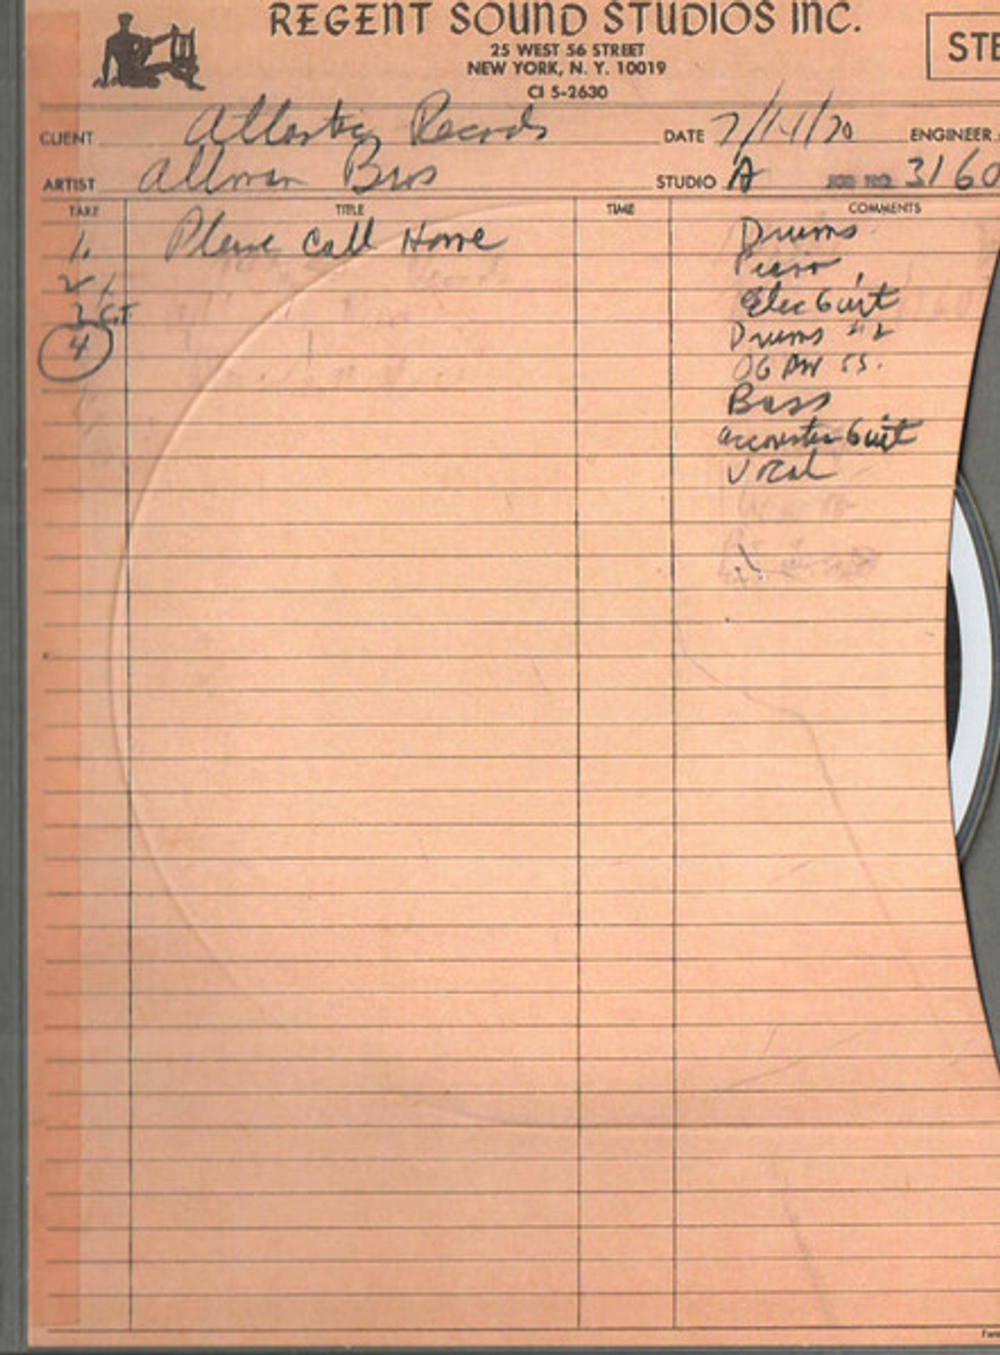 REGENT SOUND STUDIOS INC.
25 WEST 56 STREET
NEW YORK, N. Y. 10019
CI 5-2630
STE
CLIENT Atlantic Records DATE 7/14/70 ENGINEER
ARTIST Allman Bros STUDIO A JOB NO. 3160
TAKE TITLE TIME COMMENTS
1. Please Call Home Drums
2 Piano
3 Elec Guit
4 Drums #2
Bass
Vocal